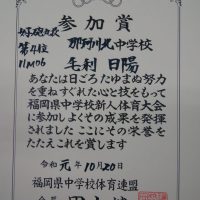 参加賞
第4位
那珂川北中学校
毛利 日陽
あなたは日ごろたゆまぬ努力
を重ねすぐれた心と技をもって
福岡県中学校新人体育大会
に参加しよくその成果を発揮
されました ここにその栄誉を
たたえこれを賞します
令和元年10月20日
福岡県中学校体育連盟